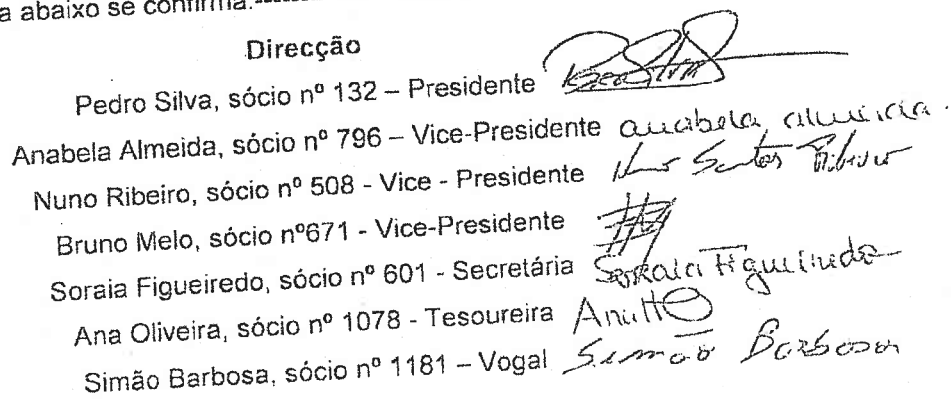 a abaixo se confirma.
Direcção
Pedro Silva, sócio nº 132 – Presidente
Anabela Almeida, sócio nº 796 – Vice-Presidente anabela almeida.
Nuno Ribeiro, sócio nº 508 - Vice - Presidente Nuno Santos Ribeiro
Bruno Melo, sócio nº671 - Vice-Presidente
Soraia Figueiredo, sócio nº 601 - Secretária Soraia Figueiredo
Ana Oliveira, sócio nº 1078 - Tesoureira
Simão Barbosa, sócio nº 1181 – Vogal Simão Barbosa